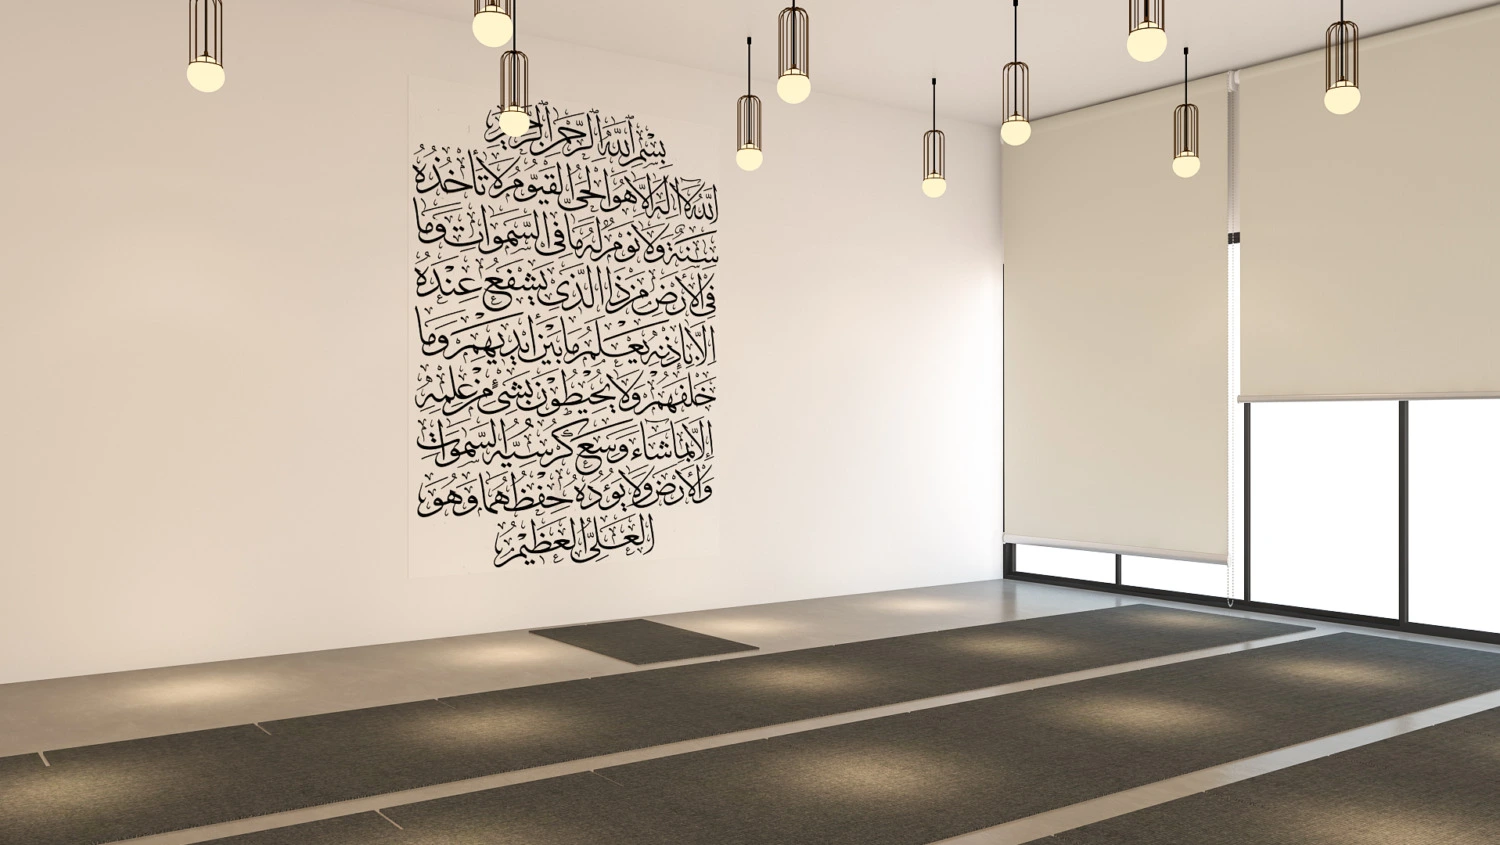 بِسْمِ اللَّهِ الرَّحْمٰنِ الرَّحِيْمِ
اَللّٰهُ لَآ اِلٰهَ اِلَّا هُوَ الْحَيُّ الْقَيُّوْمُ لَا تَأْخُذُهٗ
سِنَةٌ وَلَا نَوْمٌ لَهٗ مَا فِي السَّمٰوَاتِ وَمَا
فِي الْاَرْضِ مَنْ ذَا الَّذِيْ يَشْفَعُ عِنْدَهٗ
اِلَّا بِاِذْنِهٖ يَعْلَمُ مَا بَيْنَ اَيْدِيْهِمْ وَمَا
خَلْفَهُمْ وَلَا يُحِيْطُوْنَ بِشَيْءٍ مِنْ عِلْمِهٖ
اِلَّا بِمَا شَاءَ وَسِعَ كُرْسِيُّهُ السَّمٰوَاتِ
وَالْاَرْضَ وَلَا يَؤُدُهٗ حِفْظُهُمَا وَهُوَ
الْعَلِيُّ الْعَظِيْمُ